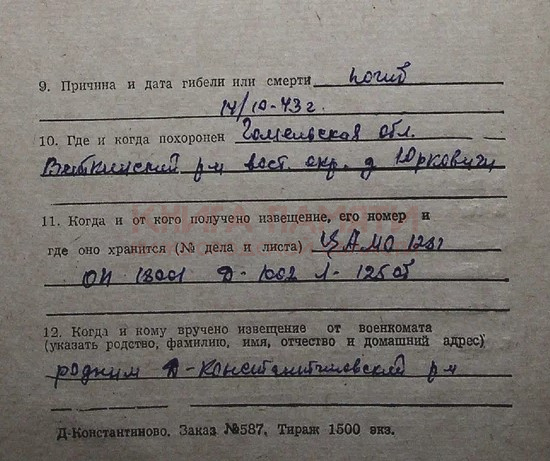 9. Причина и дата гибели или смерти погиб
14/10-43 г.
10. Где и когда похоронен Гомельская обл.
Веткинский р-н вост. окр. д Юрковичи
КНИГА ПАМЯТИ
11. Когда и от кого получено извещение, его номер и
где оно хранится (№ дела и листа) ЦАМО
ОП 18001 Д-1002 Л-125об
12. Когда и кому вручено извещение от военкомата
(указать родство, фамилию, имя, отчество и домашний адрес)
родным Д-Константиновский р-н
Д-Константиново. Заказ №587, Тираж 1500 экз.